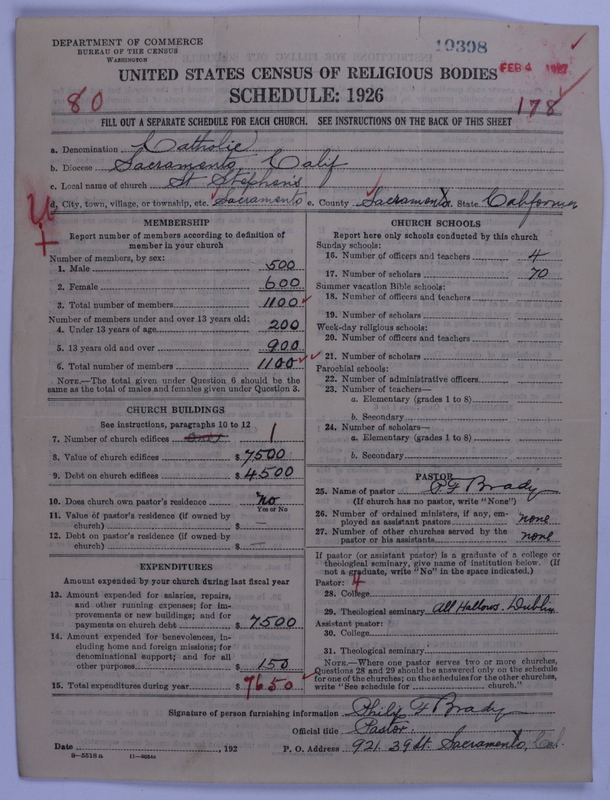 DEPARTMENT OF COMMERCE
BUREAU OF THE CENSUS
WASHINGTON
19398
FEB 4 1927
UNITED STATES CENSUS OF RELIGIOUS BODIES
SCHEDULE: 1926
80
178
FILL OUT A SEPARATE SCHEDULE FOR EACH CHURCH. SEE INSTRUCTIONS ON THE BACK OF THIS SHEET
a. Denomination Catholic
b. Diocese Sacramento, Calif
c. Local name of church St Stephens
d. City, town, village, or township, etc. Sacramento e. County Sacramento f. State California
MEMBERSHIP
Report number of members according to definition of
member in your church
Number of members, by sex:
1. Male 500
2. Female 600
3. Total number of members 1100
Number of members under and over 13 years old:
4. Under 13 years of age 200
5. 13 years old and over 900
6. Total number of members 1100
NOTE.—The total given under Question 6 should be the
same as the total of males and females given under Question 3.
CHURCH BUILDINGS
See instructions, paragraphs 10 to 12
7. Number of church edifices 1
8. Value of church edifices $ 7500
9. Debt on church edifices $ 4500
10. Does church own pastor's residence no
Yes or No
11. Value of pastor's residence (if owned by
church) $ —
12. Debt on pastor's residence (if owned by
church) $ —
EXPENDITURES
Amount expended by your church during last fiscal year
13. Amount expended for salaries, repairs,
and other running expenses; for im-
provements or new buildings; and for
payments on church debt $ 7500
14. Amount expended for benevolences, in-
cluding home and foreign missions; for
denominational support; and for all
other purposes $ 150
15. Total expenditures during year $ 7650
CHURCH SCHOOLS
Report here only schools conducted by this church
Sunday schools:
16. Number of officers and teachers 4
17. Number of scholars 70
Summer vacation Bible schools:
18. Number of officers and teachers
19. Number of scholars
Week-day religious schools:
20. Number of officers and teachers
21. Number of scholars
Parochial schools:
22. Number of administrative officers
23. Number of teachers—
a. Elementary (grades 1 to 8)
b. Secondary
24. Number of scholars—
a. Elementary (grades 1 to 8)
b. Secondary
PASTOR
25. Name of pastor P F Brady
(If church has no pastor, write "None")
26. Number of ordained ministers, if any, em-
ployed as assistant pastors none
27. Number of other churches served by the
pastor or his assistants none
If pastor (or assistant pastor) is a graduate of a college or
theological seminary, give name of institution below. (If
not a graduate, write "No" in the space indicated.)
Pastor: 4
28. College
29. Theological seminary All Hallows. Dublin
Assistant pastor:
30. College
31. Theological seminary
NOTE.—Where one pastor serves two or more churches,
Questions 28 and 29 should be answered only on the schedule
for one of the churches; on the schedules for the other churches,
write "See schedule for church."
Signature of person furnishing information Philip F Brady
Official title Pastor
Date , 192 P. O. Address 921. 39 St. Sacramento, Cal.